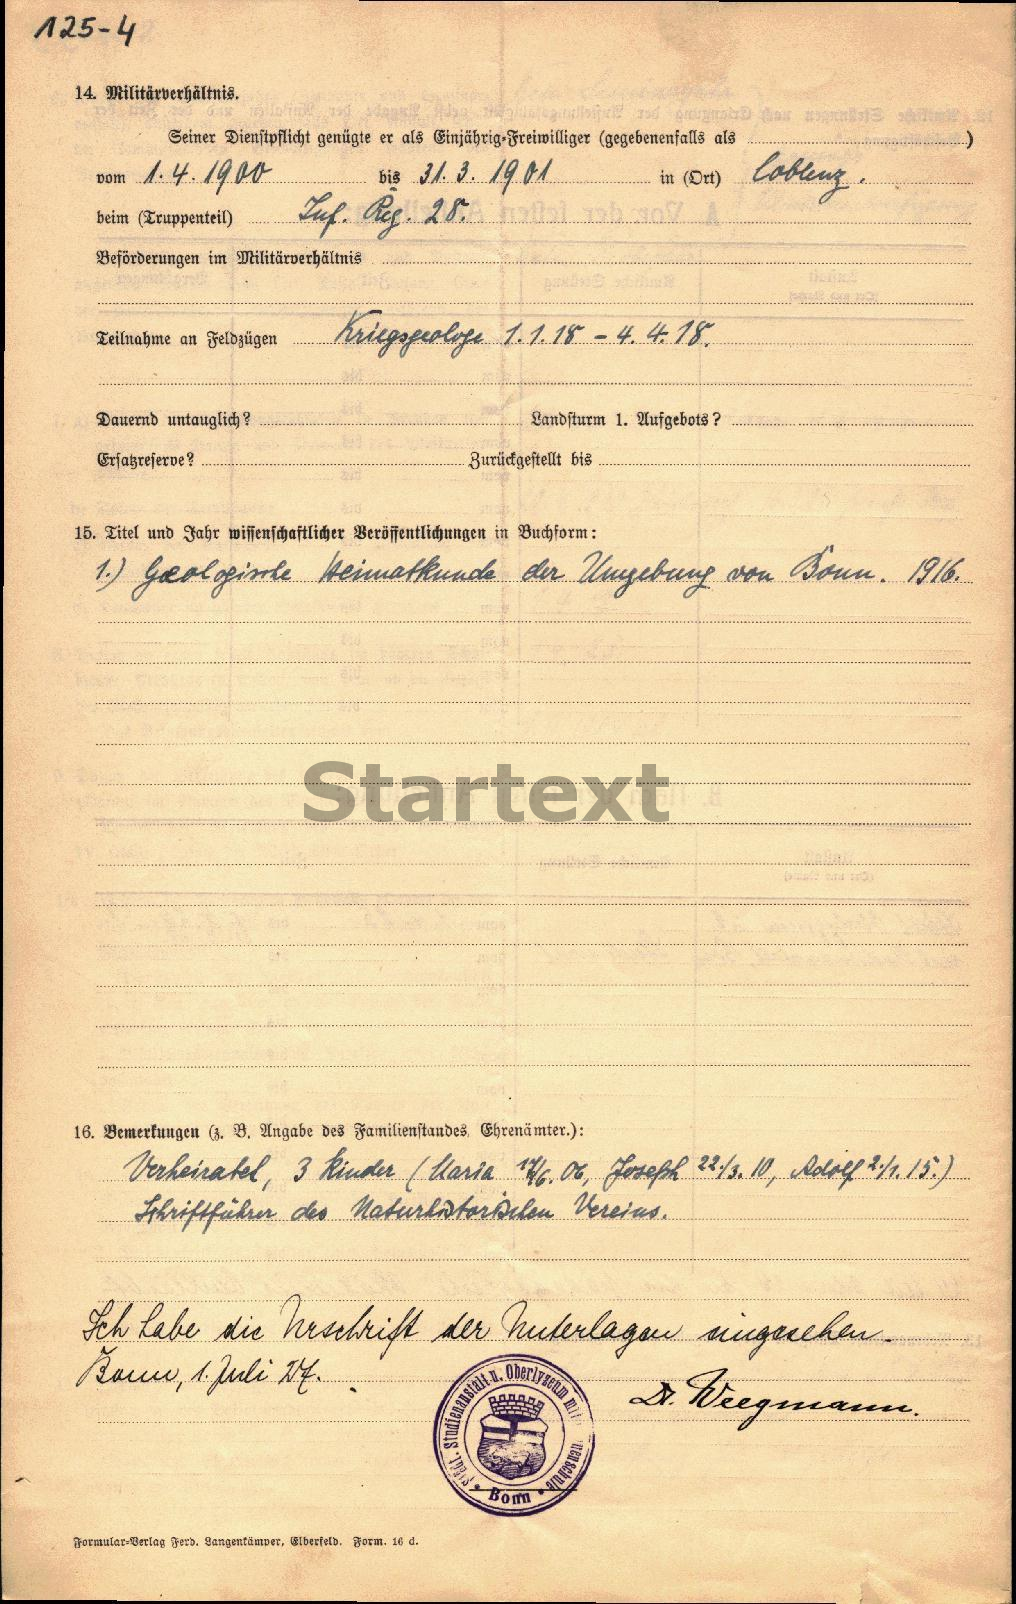 125-4
14. Militärverhältnis.
Seiner Dienstpflicht genügte er als Einjährig-Freiwilliger (gegebenenfalls als )
vom 1.4.1900 bis 31.3.1901 in (Ort) Coblenz.
beim (Truppenteil) Inf. Reg. 28.
Beförderungen im Militärverhältnis
Teilnahme an Feldzügen Kriegsgeologe 1.1.18 – 4.4.18.
Dauernd untauglich? Landsturm 1. Aufgebots?
Ersatzreserve? Zurückgestellt bis
15. Titel und Jahr wissenschaftlicher Veröffentlichungen in Buchform:
1.) Geologische Heimatkunde der Umgebung von Bonn. 1916.
Startext
16. Bemerkungen (z. B. Angabe des Familienstandes, Ehrenämter.):
Verheiratet, 3 Kinder (Maria 17/6. 06, Joseph 22./3. 10, Adolf 2./1. 15.)
Schriftführer des Naturhistorischen Vereins.
Ich habe die Urschrift der Unterlagen eingesehen.
Bonn, 1. Juli 27.
Dr. Weegmann.
Städt. Studienanstalt u. Oberlyzeum mit
Bonn
Formular-Verlag Ferd. Langenkämper, Elberfeld. Form. 16 d.